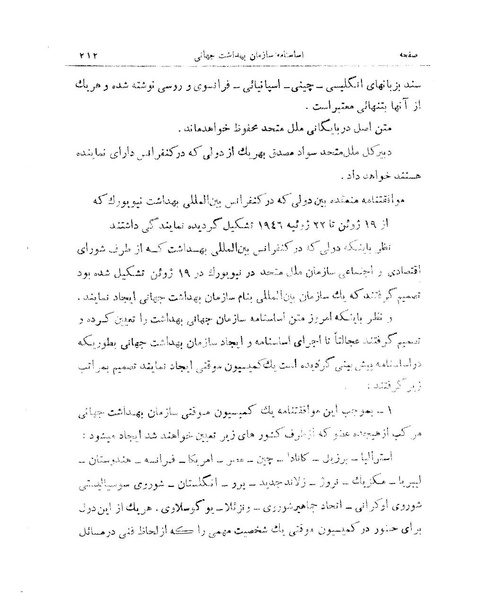 صفحه اساسنامه سازمان بهداشت جهانی ۲۱۲
سند بزبانهای انگلیسی ـ چینی ـ اسپانیائی ـ فرانسوی و روسی نوشته شده و هریك
از آنها بتنهائی معتبراست .
متن اصل دربایگانی ملل متحد محفوظ خواهدماند .
دبیركل ملل‌متحد سواد مصدق بهریك از دولی كه دركنفرانس دارای نماینده
هستند خواهد داد .
موافقتنامه منعقده بین‌دولی كه در كنفرانس بین‌المللی بهداشت نیویورك كه
از ۱۹ ژوئن تا ۲۲ ژوئیه ۱۹٤٦ تشكیل گردیده نمایندگی داشتند
نظر باینكه دولی كه در كنفرانس بین‌المللی بهداشت كه از طرف شورای
اقتصادی و اجتماعی سازمان ملل متحد در نیویورك در ۱۹ ژوئن تشكیل شده بود
تصمیم گرفتند كه یك سازمان بین‌المللی بنام سازمان بهداشت جهانی ایجاد نمایند .
و نظر باینكه امروز متن اساسنامه سازمان جهانی بهداشت را تعیین كرده و
تصمیم گرفتند عجالتاً تا اجرای اساسنامه و ایجاد سازمان بهداشت جهانی بطوریكه
دراساسنامه پیش بینی گردیده است یك كمیسیون موقتی ایجاد نمایند تصمیم بمراتب
زیر گرفتند :
۱ ـ بموجب این موافقتنامه یك كمیسیون موقتی سازمان بهداشت جهانی
مركب ازهیجده عضو كه ازطرف كشور های زیر تعیین خواهند شد ایجاد میشود :
استرالیا ـ برزیل ـ كانادا ـ چین ـ مصر ـ امریكا ـ فرانسه ـ هندوستان ـ
لیبریا ـ مكزیك ـ نروژ ـ زلاندجدید ـ پرو ـ انگلستان ـ شوروی سوسیالیستی
شوروی اوكرانی ـ اتحاد جماهیرشوروی ـ ونزئلا ـ یوگوسلاوی . هریك از این دول
برای حضور در كمیسیون موقتی یك شخصیت مهمی را كه از لحاظ فنی درمسائل